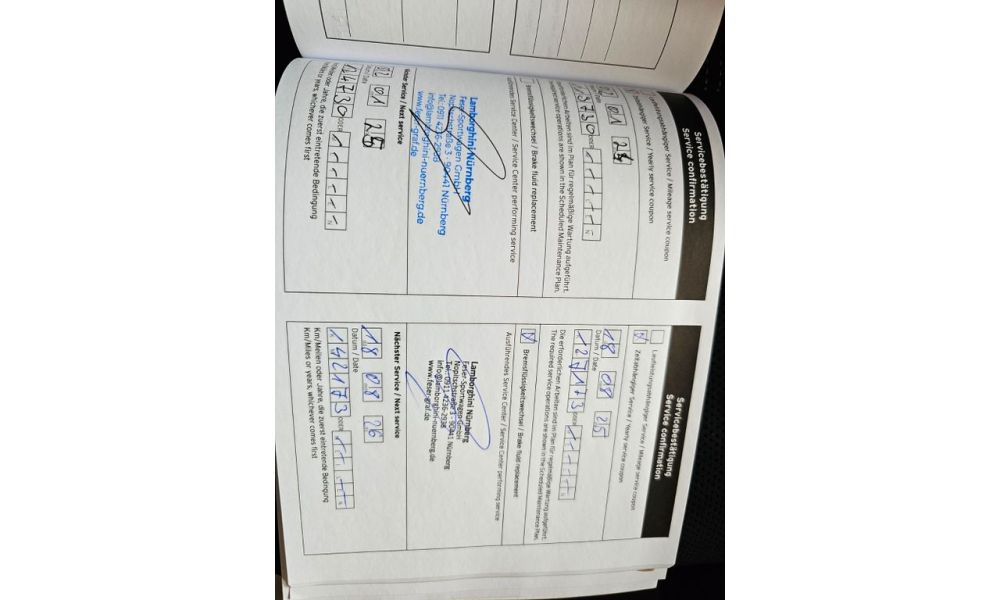 Servicebestätigung
Service confirmation
Service / Mileage service coupon
Service / Yearly service coupon
01 24
ODER
Arbeiten sind im Plan für regelmäßige Wartung aufgeführt.
service operations are shown in the Scheduled Maintenance Plan.
Bremsflüssigkeitswechsel / Brake fluid replacement
Service Center / Service Center performing service
Lamborghini Nürnberg
Feser Sportwagen GmbH
Nopitschstraße 3 · 90441 Nürnberg
Tel: 0911 4236-2938
info@lamborghini-nuernberg.de
www.feser-graf.de
Service / Next service
01 25
Date
14730 ODER
oder Jahre, die zuerst eintretende Bedingung
or years, whichever comes first
Servicebestätigung
Service confirmation
Laufleistungsabhängiger Service / Mileage service coupon
Zeitabhängiger Service / Yearly service coupon
18 08 25
Datum / Date
127173 ODER
Die erforderlichen Arbeiten sind im Plan für regelmäßige Wartung aufgeführt.
The required service operations are shown in the Scheduled Maintenance Plan.
Bremsflüssigkeitswechsel / Brake fluid replacement
Ausführendes Service Center / Service Center performing service
Lamborghini Nürnberg
Feser Sportwagen GmbH
Nopitschstraße 3 · 90441 Nürnberg
Tel.: 0911 4236-2938
info@lamborghini-nuernberg.de
www.feser-graf.de
Nächster Service / Next service
18 08 26
Datum / Date
142173 ODER
Km/Meilen oder Jahre, die zuerst eintretende Bedingung
Km/Miles or years, whichever comes first